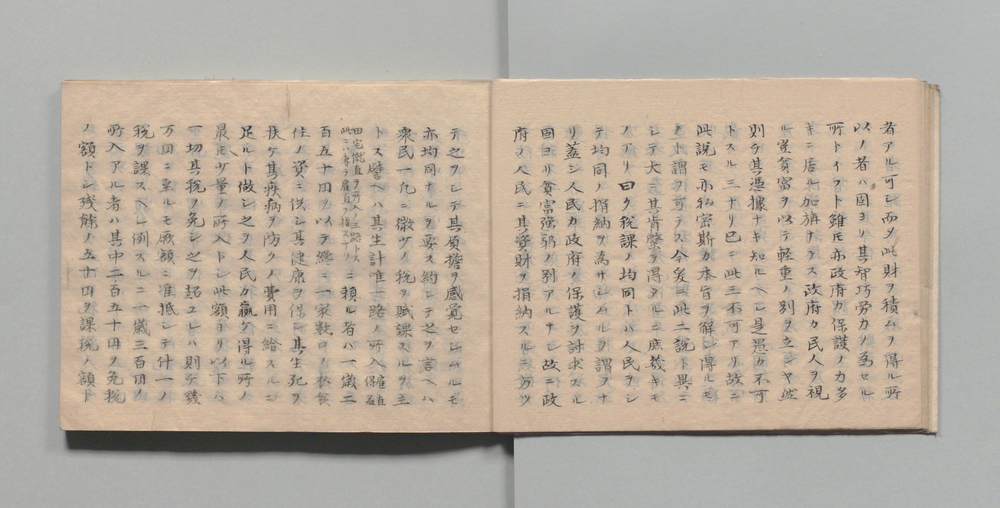 者アル可シ而〆此財ヲ積ムヲ得ル所
以ノ者ハ固ヨリ其智巧労力ノ為セル
所トイフト雖モ亦政府カ保護ノ力多
キニ居ル加旃ナラス政府カ民人ヲ視
ル豈貧富ヲ以テ軽重ノ別ヲ立ンヤ然
則ケ其憑據ナキ知ルヘシ是愚カ不可
トスル三ナリ已ニ此三不可アリ故ニ
此説モ亦私密斯カ本旨ヲ解シ得ルモ
ノト謂フ可ラス今爰ニ此二説ト異ニ
シテ大ニ其肯綮ヲ得タルニ庶幾キモ
ノアリ曰ク税課ノ均同トハ人民ヲシ
テ均同ノ捐納ヲ為サシムルヲ謂フナ
リ蓋シ人民カ政府ノ保護ヲ討求スル
固ヨリ貧富強弱ノ別アルナシ故ニ政
府ノ人民ニ其資財ヲ捐納スルニ方ツ
テ之ヲシテ其負擔ヲ感覚セシムルモ
亦均同ナルヲ要ス約シテ之ヲ言ヘハ
衆民一免ニ微ツノ税ヲ賦課スルヲ主
トス譬ヘハ其生計唯一路ノ所入
百五十円ヲ以テ纔ニ一家数口ノ衣食
住ノ資ニ供シ其健康ヲ保シ其生死ヲ
扶ケ其疾病ヲ防クノ費用ニ給スルニ
足ルト做シ之ヲ人民カ贏ケ得ル所ノ
最モ少量ノ所入トシ此額ヨリ以下ハ
一切其税ヲ免シ之ヲ超ユレハ則ケ幾
万円ニ至ルモ厥額ニ准抵シテ什一ノ
税ヲ課スヘシ例スルニ一歳三百円ノ
所入アル者ハ其中二百五十円ヲ免税
ノ額トシ残餘ノ五十円ヲ課税ノ額ト